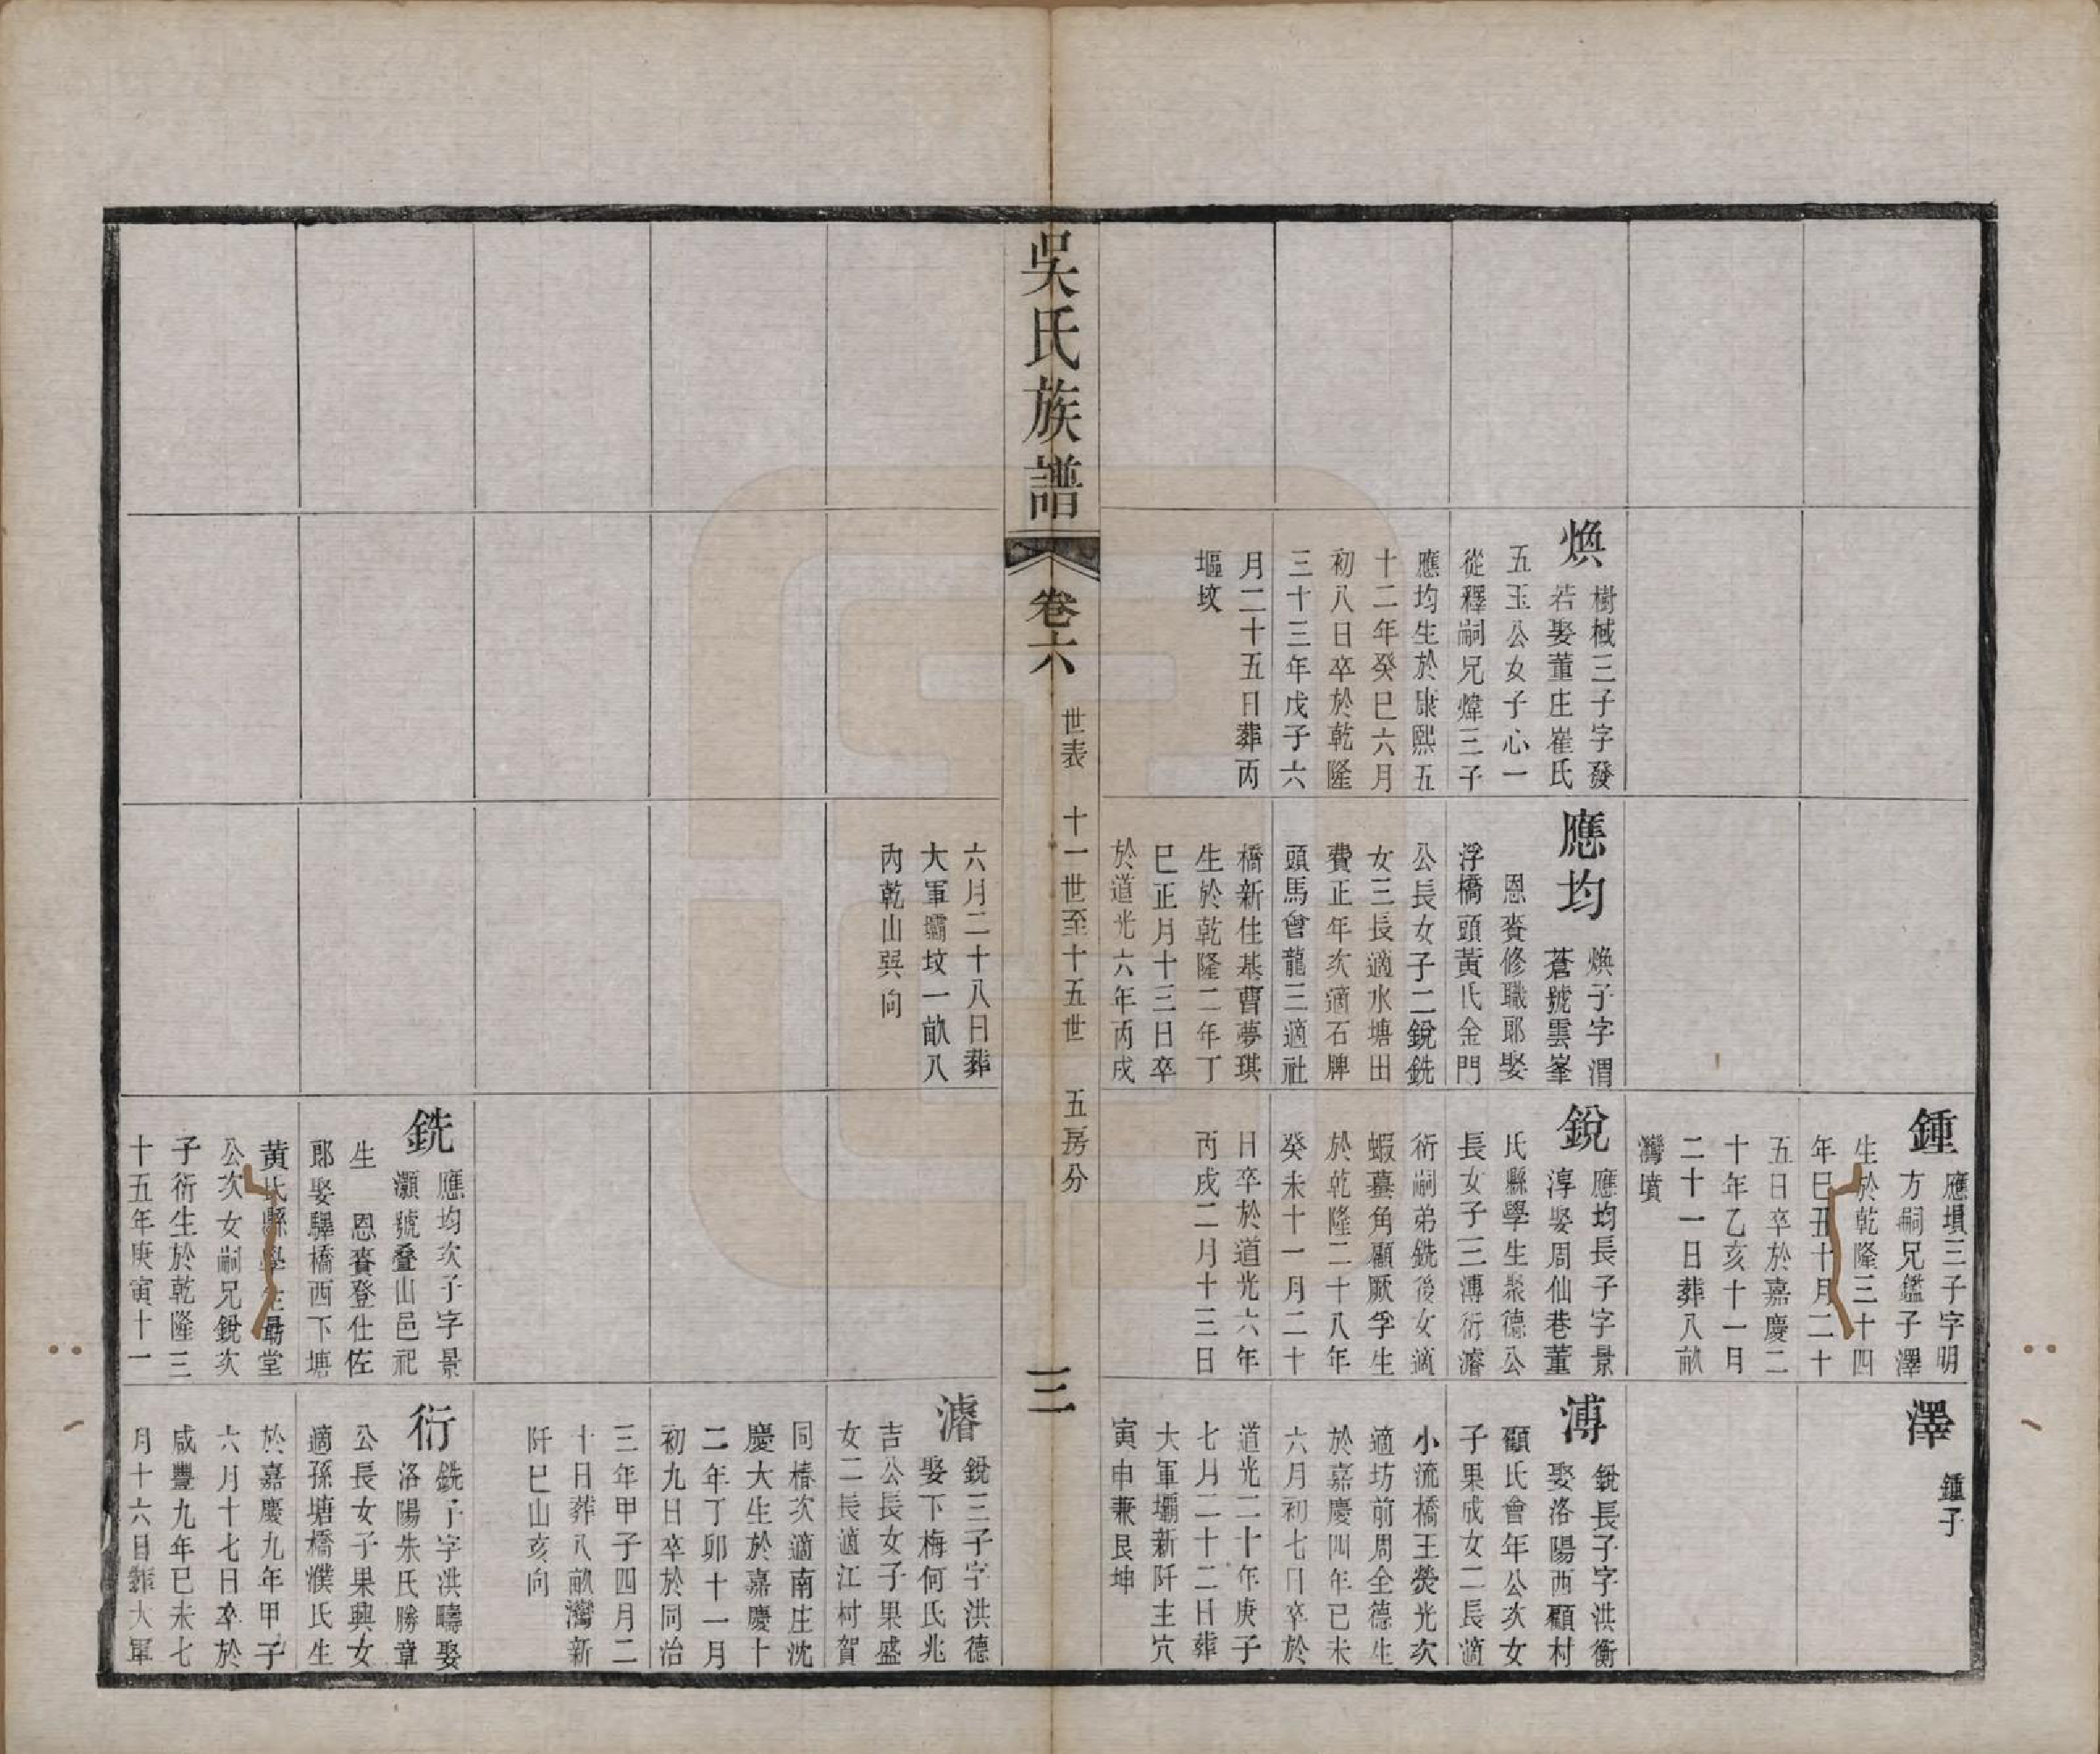 煥
樹棫三子字發
若娶董庄崔氏
五玉公女子心一
從釋嗣兄煒三子
應均生於康熙五
十二年癸巳六月
初八日卒於乾隆
三十三年戊子六
月二十五日葬丙
塸坟
應均
煥子字渭
蒼號雲峯
恩賚修職郎娶
浮橋頭黃氏金門
公長女子二銳銑
女三長適水塘田
費正年次適石牌
頭馬會龍三適社
橋新住基曹夢琪
生於乾隆二年丁
巳正月十三日卒
於道光六年丙戌
六月二十八日葬
大軍壩坟一畝八
內乾山巽向
鍾
應塤三子字明
方嗣兄鑑子澤
生於乾隆三十四
年巳丑十月二十
五日卒於嘉慶二
十年乙亥十一月
二十一日葬八畝
灣墳
銳
應均長子字景
淳娶周仙巷董
氏縣學生聚德公
長女子三溥衍濬
衍嗣弟銑後女適
蝦蟇角顧厥孚生
於乾隆二十八年
癸未十一月二十
日卒於道光六年
丙戌二月十三日
銑
應均次子字景
灝號叠山邑祀
生　恩賚登仕佐
郎娶驛橋西下塘
黃氏縣學生最堂
公次女嗣兄銳次
子衍生於乾隆三
十五年庚寅十一
澤
鍾子
溥
銳長子字洪衡
娶洛陽西顧村
顧氏會年公次女
子果成女二長適
小流橋王熒光次
適坊前周全德生
於嘉慶四年已未
六月初七日卒於
道光二十年庚子
七月二十二日葬
大軍壩新阡主穴
寅申兼艮坤
濬
銳三子字洪德
娶下梅何氏兆
吉公長女子果盛
女二長適江村賀
同椿次適南庄沈
慶大生於嘉慶十
二年丁卯十一月
初九日卒於同治
三年甲子四月二
十日葬八畝灣新
阡巳山亥向
衍
銑子字洪疇娶
洛陽朱氏勝章
公長女子果興女
適孫塘橋濮氏生
於嘉慶九年甲子
六月十七日卒於
咸豐九年已未七
月十六日葬大軍
吳氏族譜
卷六
世表　十一世至十五世　五房分
三